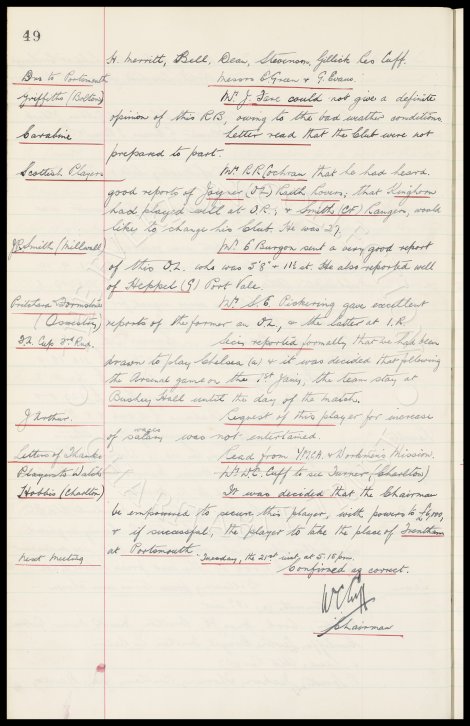 49
H. Merritt, Bell, Dean, Stevenson, Gillick les Cuff.
Dns to Portsmouth Messrs C Green & G. Evans.
Griffiths (Bolton) Mr. J. could not give a definite
opinion of this R.B. owing to the bad weather conditions.
Carabine Letter read that the Club were not
prepared to part.
Scottish Players Mr. R.R. Cochran that he had heard
good reports of Joyner (O.L.) Raith Rovers; that Kinghorn
had played well at O.R.; & Smith (CF) Rangers, would
like to change his Club. He was 27.
J.R. Smith (Millwall) Mr. E Burgon sent a very good report
of this O.L. who was 5'8" & 11st. He also reported well
of Heppel (G) Port Vale.
Mr. S.E. Pickering gave excellent
(Ossistons) reports of the former on O.L., & the latter at I.R.
F.A. Cup 3rd Rnd. Secy. reported formally that we had been
drawn to play Chelsea (a) & it was decided that following
the Arsenal game on the 1st Jany, the team stay at
Bushey Hall until the day of the match.
J Arthur. Request of this player for increase
of salary wages was not entertained.
Letters of Thanks Read from Y.M.C.A. & Workmen's Mission.
Players to Watch Mr. W.C. Cuff to see Turner, (Charlton)
Hobbis (Charlton) It was decided that the Chairman
be empowered to secure this player, with powers to £6,000,
& if successful, the player to take the place of Trentham
at Portsmouth.
next Meeting Tuesday, the 21st inst, at 5.15pm.
Confirmed as correct.
W C Cuff
Chairman